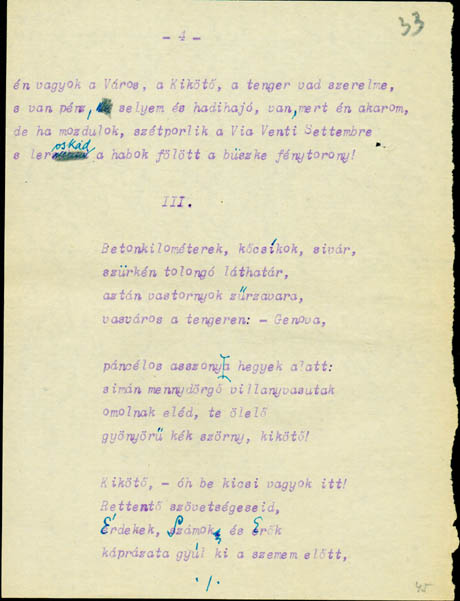 33
- 4 -
én vagyok a Város, a Kikötő, a tenger vad szerelme,
s van pénz, selyem és hadihajó, van, mert én akarom,
de ha mozdulok, szétporlik a Via Venti Settembre
s leroskád a habok fölött a büszke fénytorony!
III.
Betonkilométerek, kőcsíkok, sivár,
szürkén tolongó láthatár,
aztán vastornyok zűrzavara,
vasváros a tengeren: - Genova,
páncélos asszony a hegyek alatt:
simán mennydörgő villanyvasutak
omolnak eléd, te ölelő
gyönyörű kék szörny, kikötő!
Kikötő, - óh be kicsi vagyok itt!
Rettentő szövetségeseid,
Érdekek, Számok, és Erők
káprázata gyúl ki a szemem előtt,
./.
45